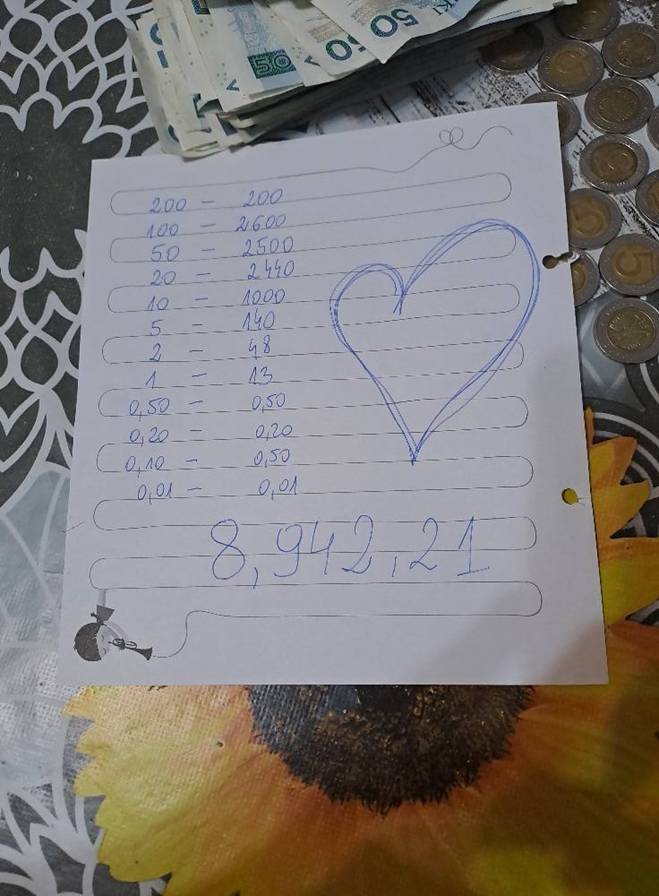 50 50 50
KI
200 - 200
100 - 2600
50 - 2500
20 - 2440
10 - 1000
5 - 140
2 - 48
1 - 13
0,50 - 0,50
0,20 - 0,20
0,10 - 0,50
0,01 - 0,01
8,942,21
5